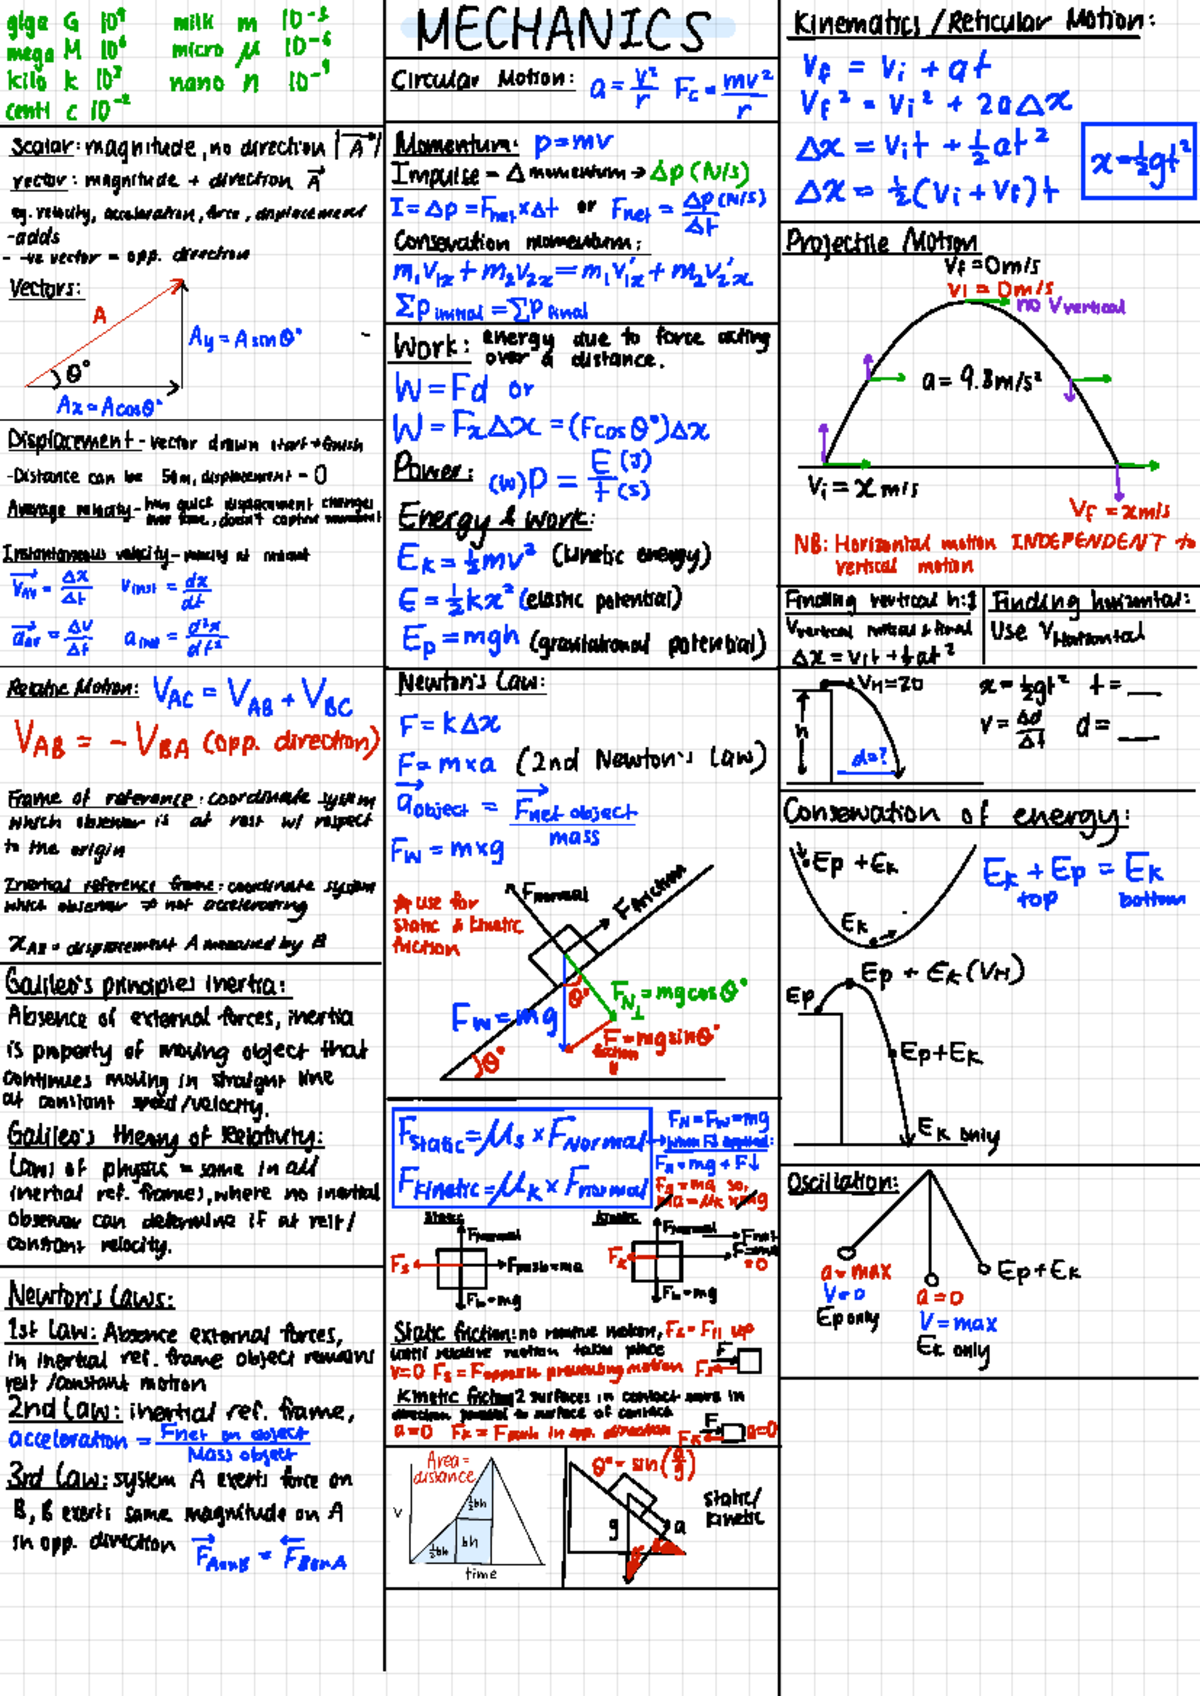 giga G 10⁹ milli m 10⁻³
mega M 10⁶ micro μ 10⁻⁶
kilo k 10³ nano n 10⁻⁹
centi c 10⁻²
Scalar: magnitude, no direction |A⃗|
vector: magnitude + direction A⃗
eg. velocity, acceleration, force, displacement
-adds
- -ve vector = opp. direction
Vectors:
A
θ°
Ay = A sin θ°
Ax = A cos θ°
Displacement - vector drawn start → finish
-Distance can be 50m, displacement = 0
Average velocity - how quick displacement changes
over time, doesn't capture movement
Instantaneous velocity - velocity at instant
v⃗AV = Δx/Δt vinst = dx/dt
a⃗av = Δv/Δt ainst = d²x/dt²
Relative Motion: VAC = VAB + VBC
VAB = - VBA (opp. direction)
Frame of reference: coordinate system
which observer is at rest w/ respect
to the origin
Inertial reference frame: coordinate system
which observer → not accelerating
xAB = displacement A measured by B
Galileo's principles inertia:
Absence of external forces, inertia
is property of moving object that
continues moving in straight line
at constant speed/velocity.
Galileo's theory of Relativity:
Laws of physics = same in all
inertial ref. frames, where no inertial
observer can determine if at rest/
constant velocity.
Newton's Laws:
1st Law: Absence external forces,
in inertial ref. frame object remains
rest/constant motion
2nd Law: inertial ref. frame,
acceleration = Fnet on object / Mass object
3rd Law: system A exerts force on
B, B exerts same magnitude on A
in opp. direction
F⃗AonB = F⃖BonA
MECHANICS
Circular Motion: a = v²/r Fc = mv²/r
Momentum: p = mv
Impulse - Δ momentum → Δp (N/s)
I = Δp = Fnet × Δt or Fnet = Δp (N/s)/Δt
Consevation momentum:
m₁V₁x + m₂V₂x = m₁V₁'x + m₂V₂'x
Σp initial = Σp final
Work: energy due to force acting
over a distance.
W = Fd or
W = FxΔx = (F cos θ°)Δx
Power: (W) P = E (J)/t (s)
Energy & work:
EK = ½mv² (kinetic energy)
E = ½kx² (elastic potential)
Ep = mgh (gravitational potential)
Newton's Law:
F = kΔx
F = m×a (2nd Newton's Law)
a⃗object = F⃗net object / mass
FW = m×g
Fnormal
Ffriction
☆ use for
static & kinetic
friction
θ°
FN⊥ = mg cos θ°
FW = mg
F = mg sin θ°
friction
θ°
Fstatic = μs × FNormal
Fkinetic = μK × Fnormal
FN = FW = mg
when F↓ applied:
FN = mg + F↓
Static
Fnormal
Fs
Fpush = ma
FW = mg
Kinetic
Fnormal
Fnet
FK
= 0
FW = mg
Static friction: no relative motion, Fs = F∥ up
until relative motion takes place
v=0 Fs = Fopposite preventing motion
F
Fs
Kinetic friction 2 surfaces in contact move in
direction parallel to surface of contact
a=0 FK = Fpush in opp. direction
F
FK
a=0
Area =
distance
½bh
½bh
bh
v
time
θ° = sin(a/g)
g
a
static/
kinetic
Kinematics / Reticular Motion:
Vf = Vi + at
Vf² = Vi² + 2aΔx
Δx = Vit + ½at²
Δx = ½(Vi + Vf)t
x = ½gt²
Projectile Motion
Vf = 0m/s
Vi = 0m/s
no Vvertical
a = 9.8m/s²
Vi = x m/s
Vf = xm/s
NB: Horizontal motion INDEPENDENT to
vertical motion
Finding vertical h:
Vvertical initial & final
Δx = Vit + ½at²
Finding horizontal:
Use VHorizontal
VH = 20
h
d = ?
x = ½gt² t = __
v = Δd/Δt d = __
Consevation of energy:
Ep + EK
EK
EK + Ep = EK
top bottom
Ep
Ep + EK (VH)
Ep + EK
EK only
Oscillation:
a = max
V = 0
Ep only
a = 0
V = max
EK only
Ep + EK